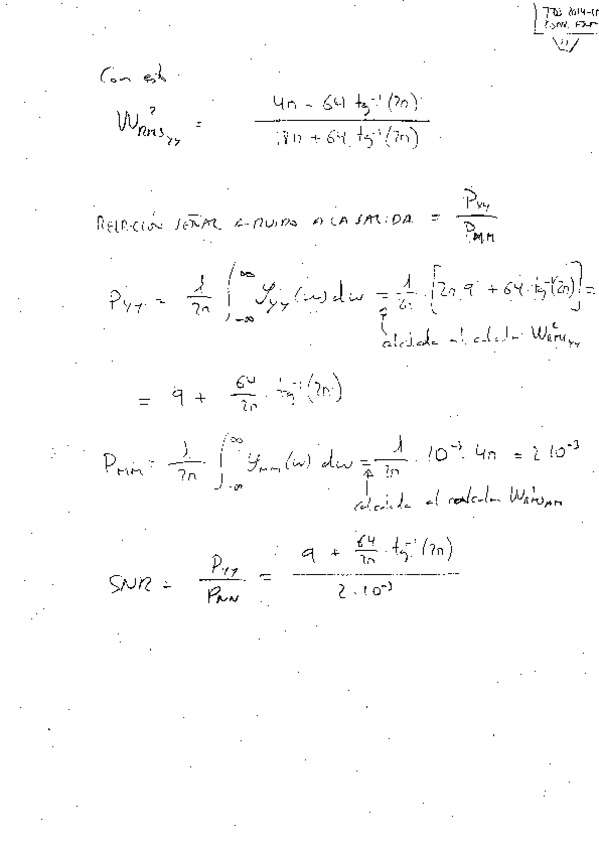 Con esto
W²RMS_YY = (4π - 64 tg⁻¹(2π)) / (18π + 64 tg⁻¹(2π))
RELACIÓN SEÑAL A RUIDO A LA SALIDA = P_YY / P_NN
P_YY = 1/2π · ∫_{-∞}^{∞} 𝒮_YY(ω) dω = 1/2π · [2π 9 + 64 · tg⁻¹(2π)] =
calculada al calcular W²RMS_YY
= 9 + 64/2π · tg⁻¹(2π)
P_NN = 1/2π · ∫_{-∞}^{∞} 𝒮_NN(ω) dω = 1/2π · 10⁻³ · 4π = 2 10⁻³
calculada al calcular W²RMS_NN
SNR = P_YY / P_NN = (9 + 64/2π · tg⁻¹(2π)) / (2 · 10⁻³)